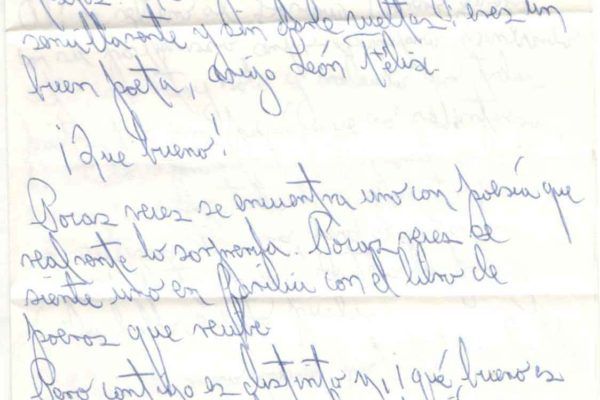 sencillamente y sin darle vueltas: eres un
buen poeta, amigo León Félix.
¡Que bueno!
Pocas veces se encuentra uno con poesía que
realmente lo sorprenda. Pocas veces se
siente uno en familia con el libro de
poemas que recibe
Pero contigo es distinto y, ¡qué bueno es